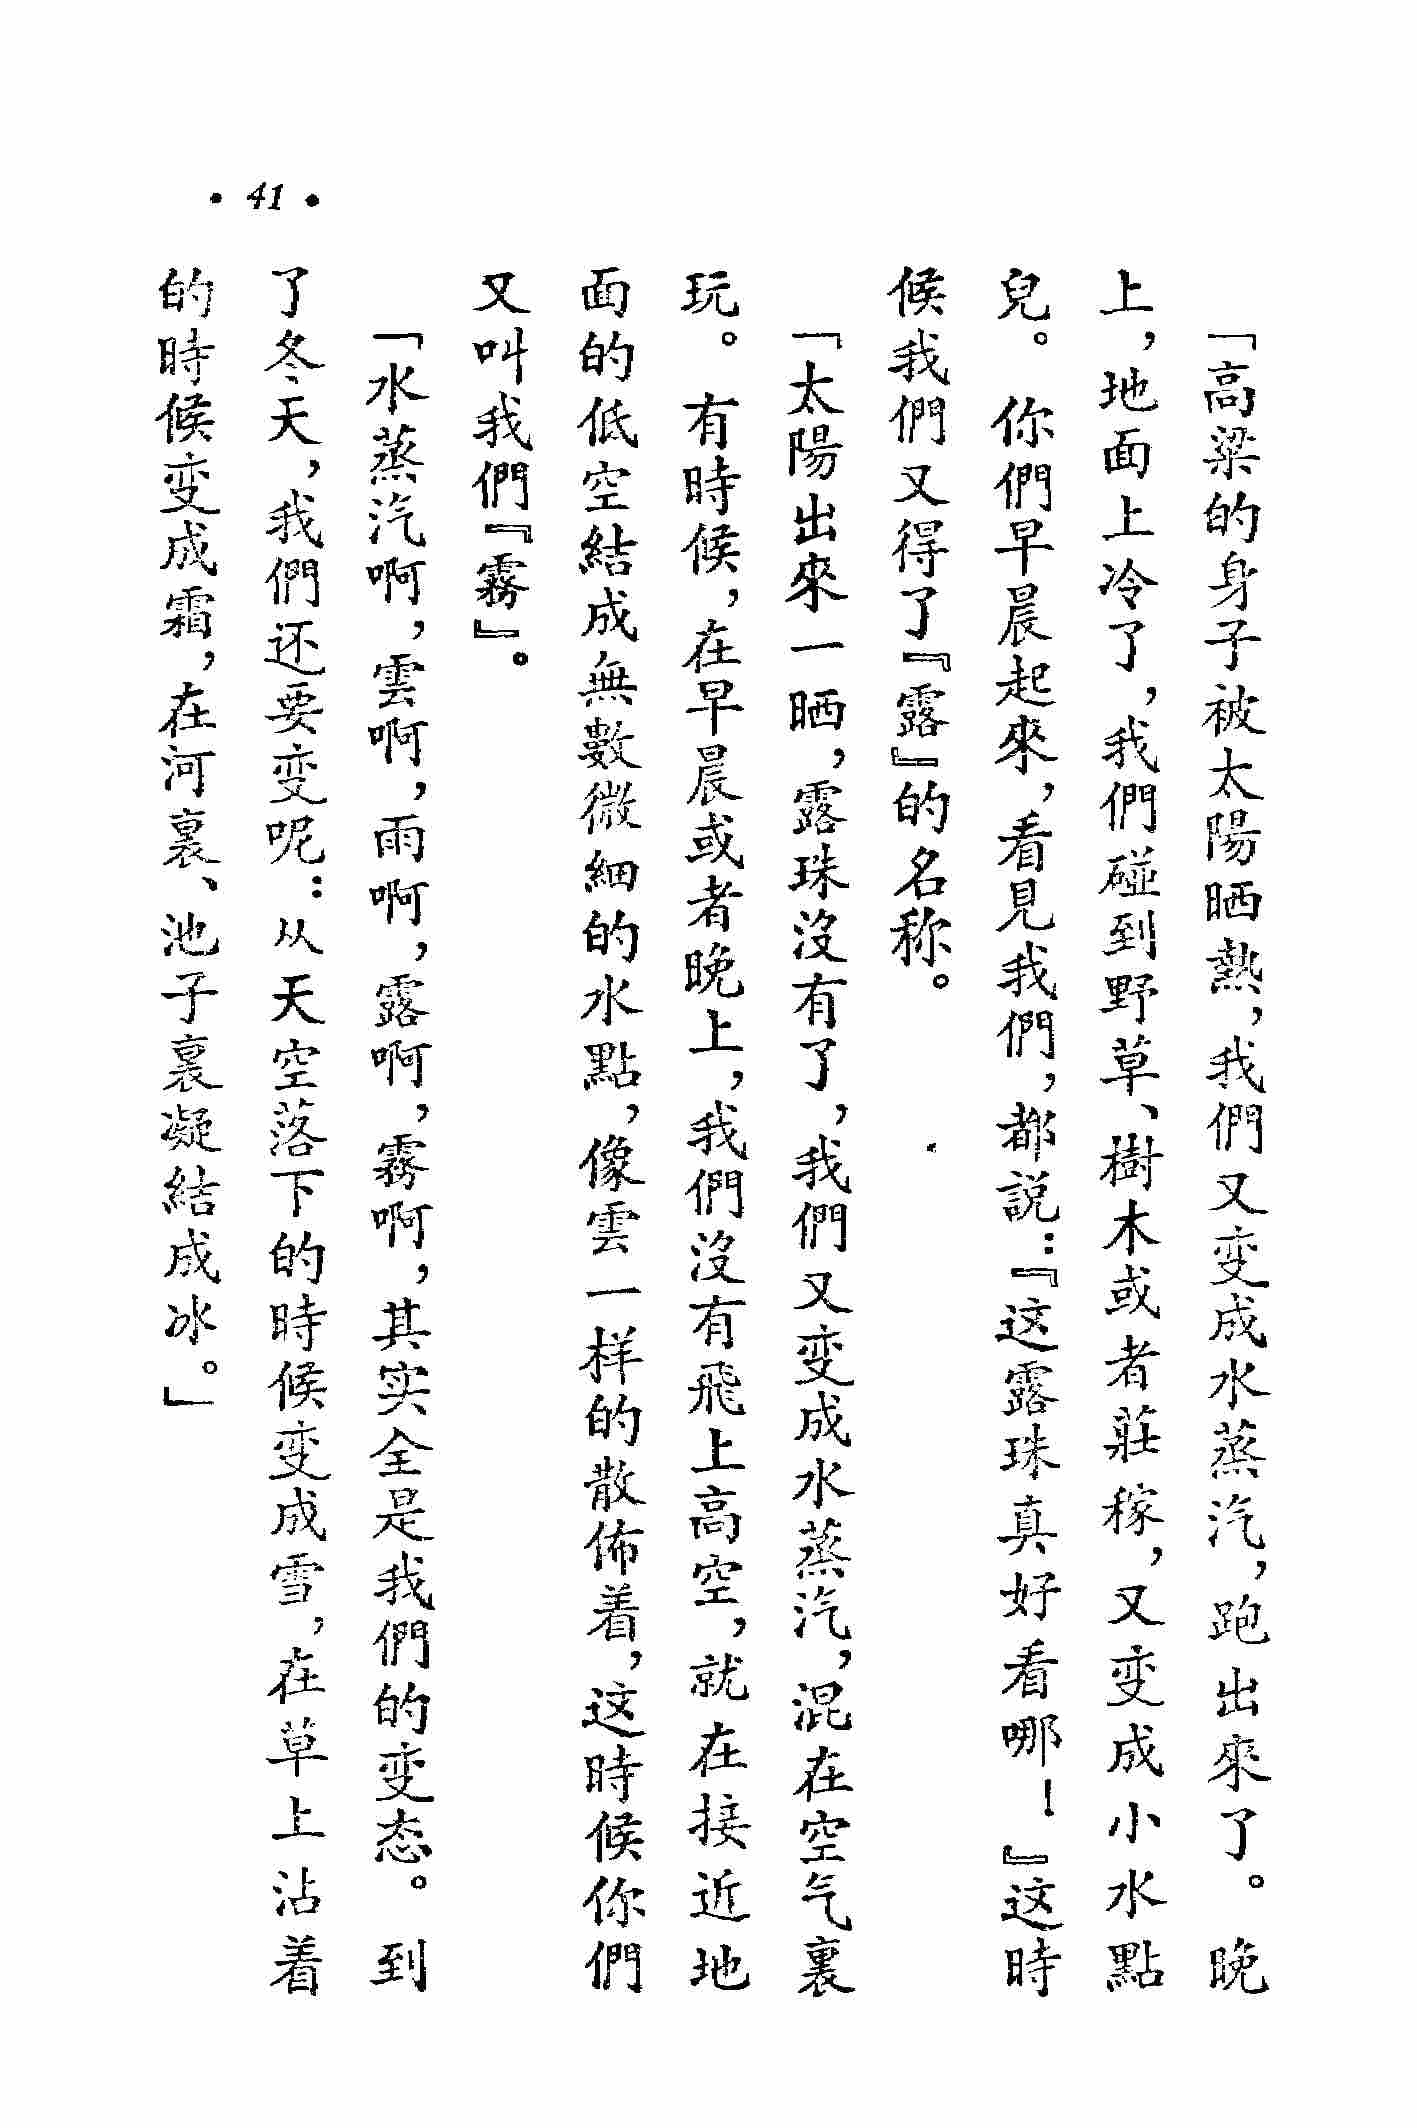 • 41 •
「高粱的身子被太陽晒熱，我們又变成水蒸汽，跑出來了。晚
上，地面上冷了，我們碰到野草、樹木或者莊稼，又变成小水點
兒。你們早晨起來，看見我們，都説：『这露珠真好看哪！』这時
候我們又得了『露』的名称。
「太陽出來一晒，露珠沒有了，我們又变成水蒸汽，混在空气裏
玩。有時候，在早晨或者晚上，我們沒有飛上高空，就在接近地
面的低空結成無數微細的水點，像雲一样的散佈着，这時候你們
又叫我們『霧』。
「水蒸汽啊，雲啊，雨啊，露啊，霧啊，其实全是我們的变态。到
了冬天，我們还要变呢：从天空落下的時候变成雪，在草上沾着
的時候变成霜，在河裏、池子裏凝結成冰。」